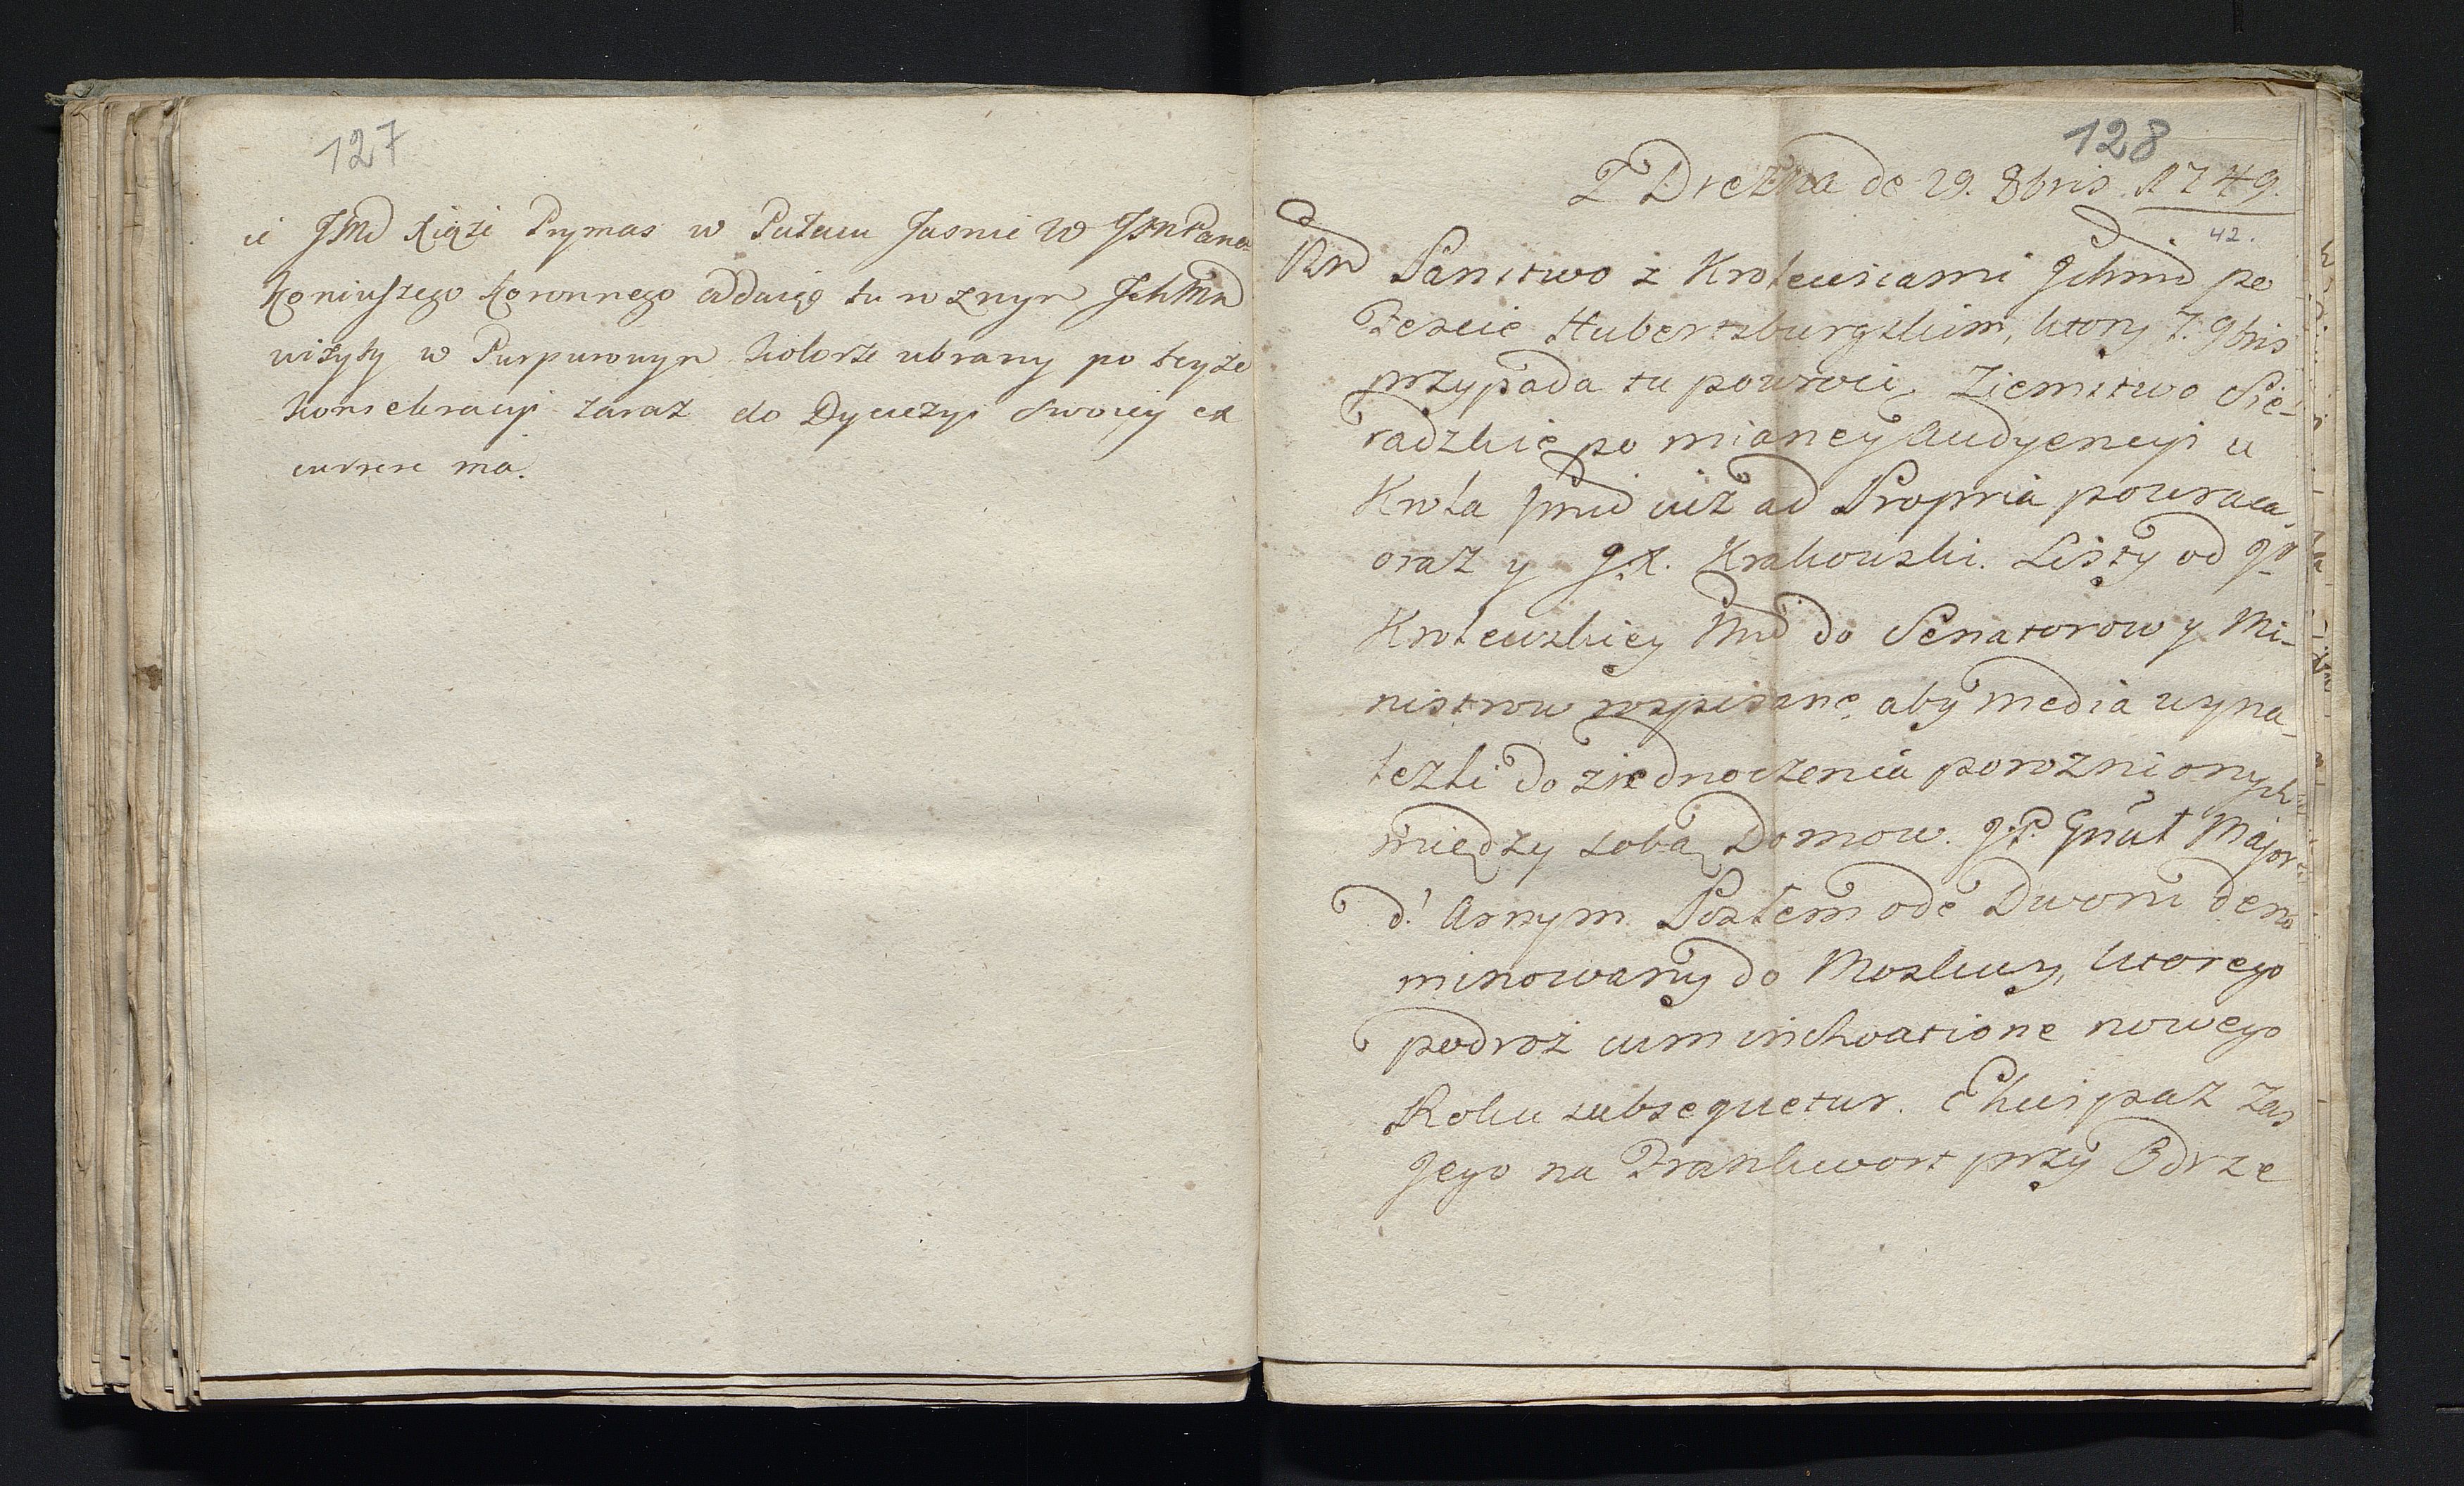 127
ie JMć Xiąże Prymas w Pałacu Jasnie W JmPana
Koniuszego Koronnego oddaiąc tu roznym JchMm
wizyty w Purpurowym kolorze ubrany po teyże
konsekracyi zaraz do Dyecezyi swoiey ex
currere ma.
128
Z Drezna de 29. 8bris 1749.
42.
Państwo z Krolewicami Jchmć po
Feście Hubertsburgskim, ktory 7. 9bris
przypada tu powroci. Ziemstwo Sie-
radzkie po mianey Audyencyi u
Krola Jmći iuż ad Propria powraca,
oraz y J.X. Krakowski. Listy od
Krolewskiey Mći do Senatorow y Mi-
nistrow rozpisane, aby media wyna-
lezli do ziednoczenia porożnionych
między sobą Domow. J.P. Major
d'Arnym Posłem ode Dworu deno
minowany do Moskwy, ktorego
podroż cum inchoatione nowego
Roku subsequetur. Ekwipaż zas
Jego na Frankwort przy Odrze